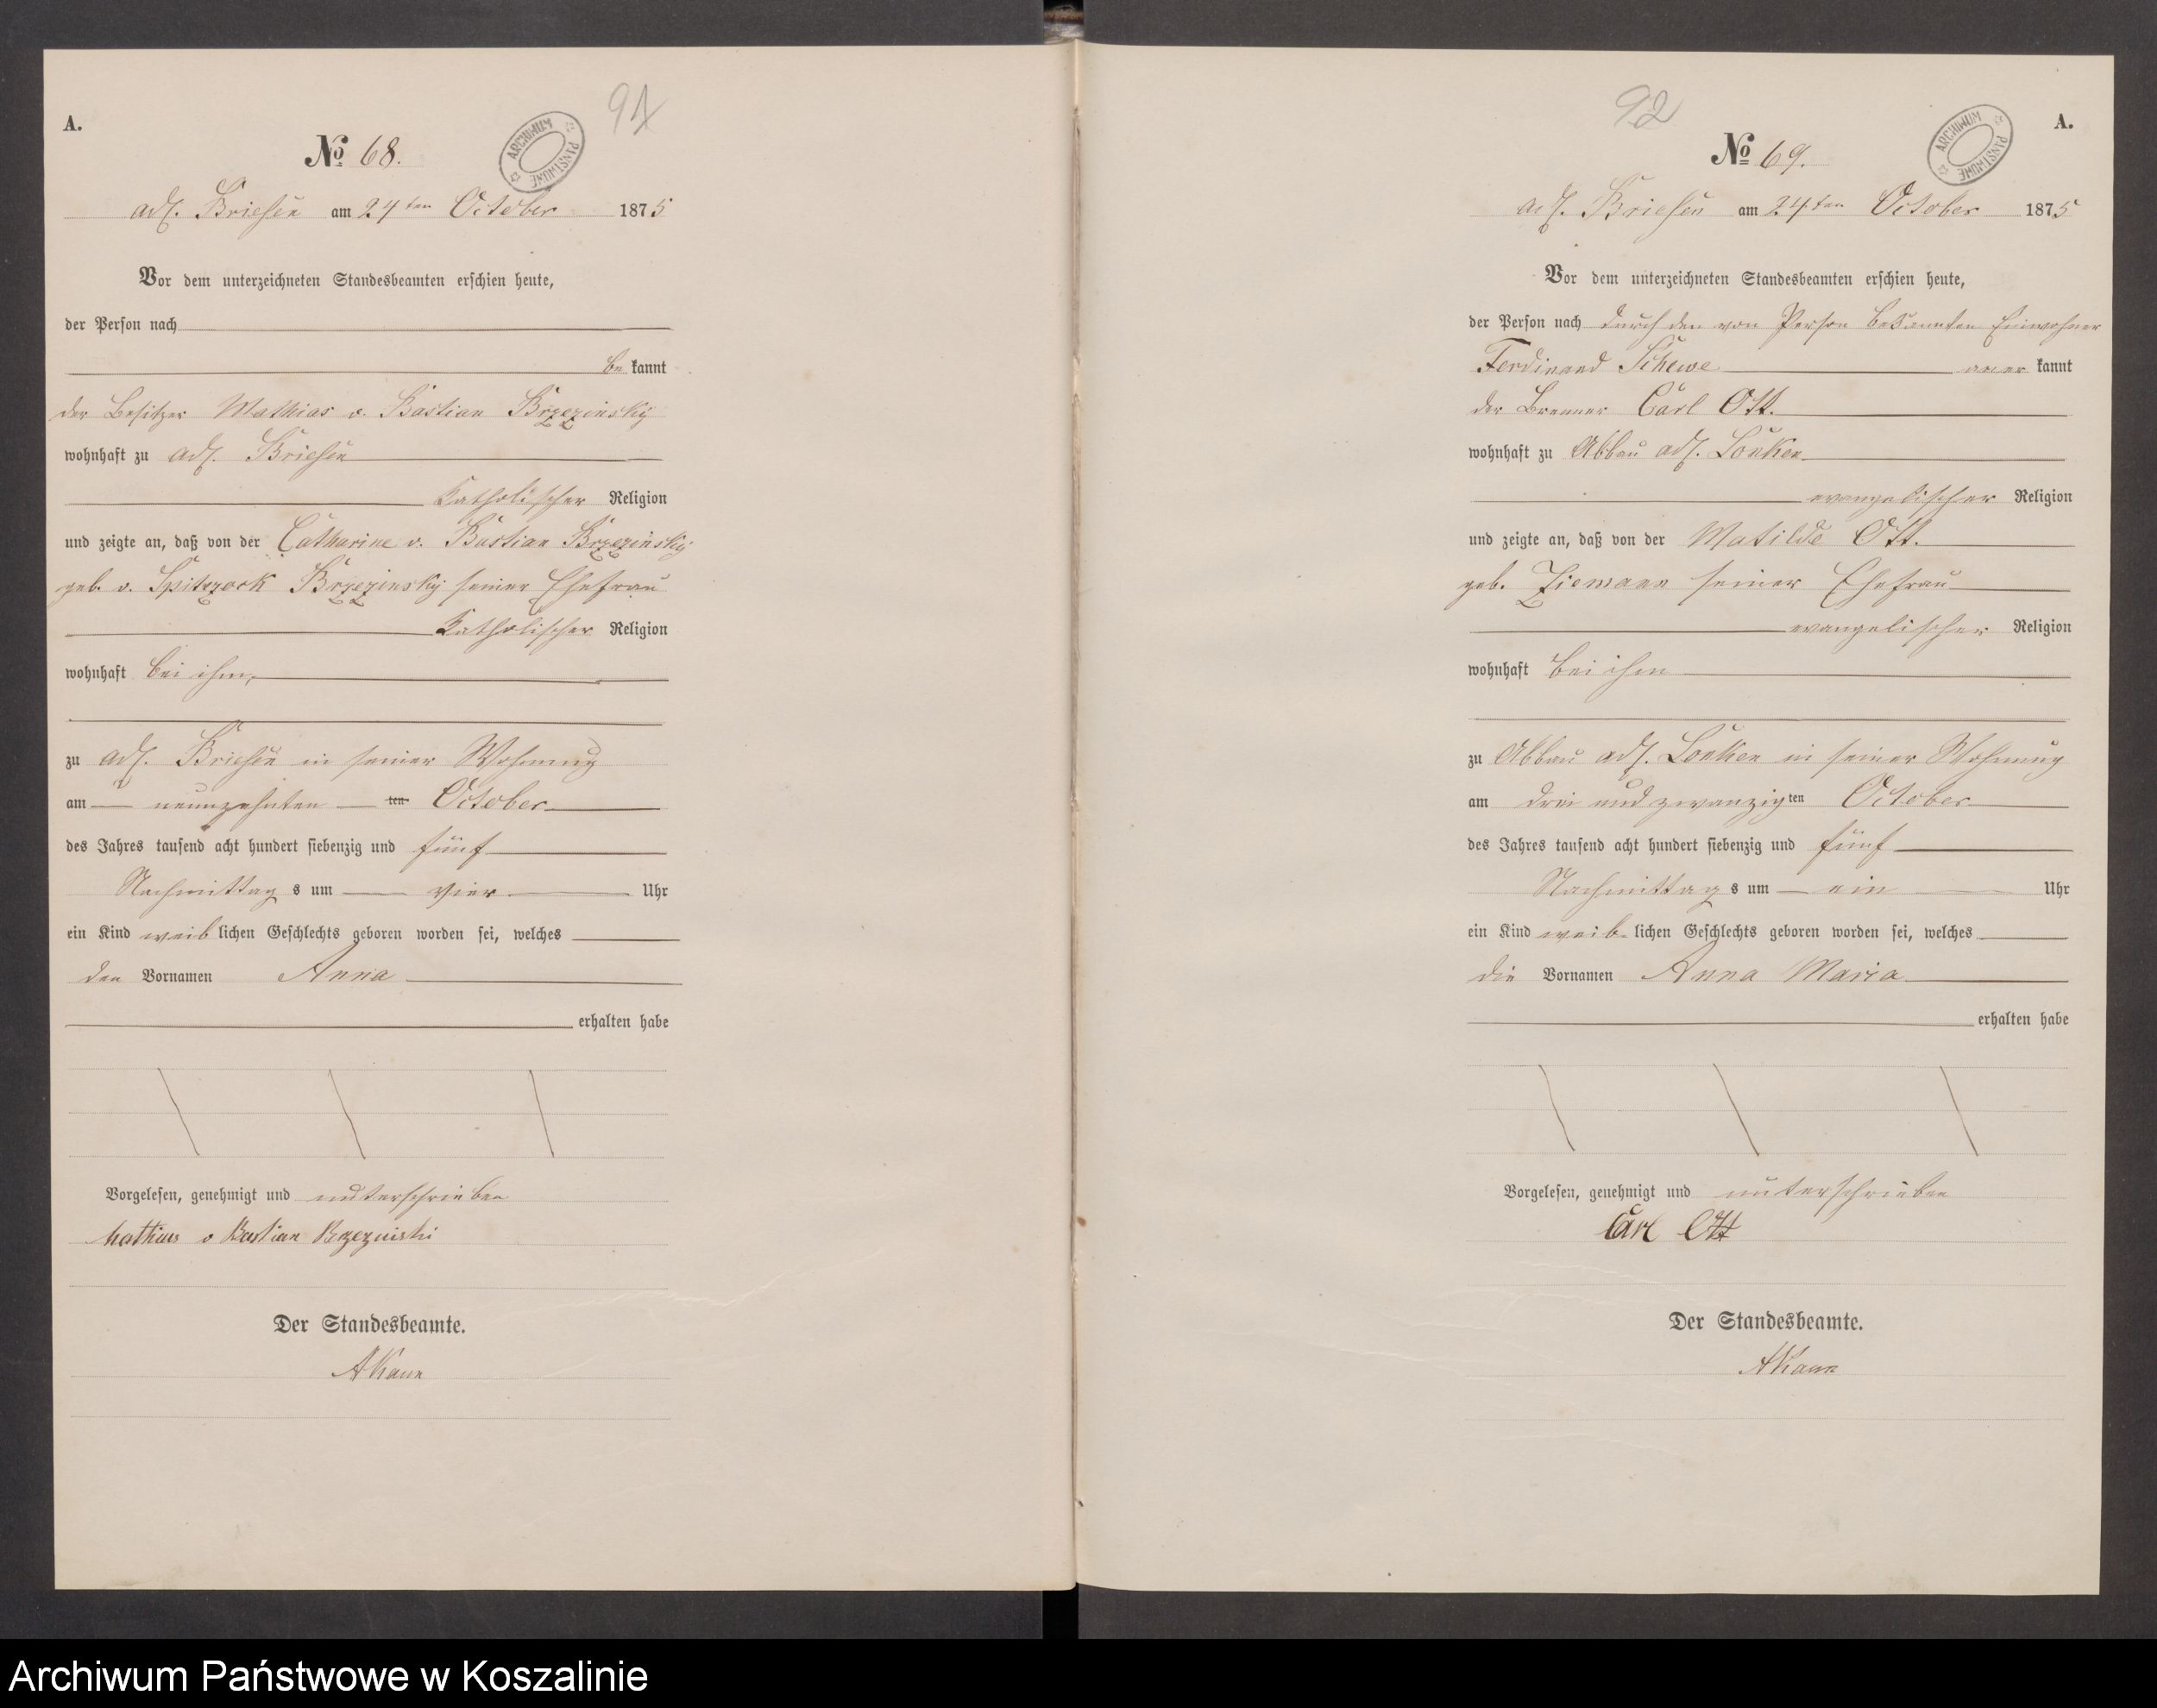 91
A.
No 68.
ARCHIWUM PAŃSTWOWE
adl. Briesen am 24ten October 1875
Vor dem unterzeichneten Standesbeamten erschien heute,
der Person nach
be kannt
der Besitzer Mathias v. Bastian Brzezinsky
wohnhaft zu adl. Briesen
katholischer Religion
und zeigte an, daß von der Catharine v. Bastian Brzezinsky
geb. v. Spitzock Brzezinsky seiner Ehefrau
katholischer Religion
wohnhaft bei ihm,
zu adl. Briesen in seiner Wohnung
am neunzehnten ten October
des Jahres tausend acht hundert siebenzig und fünf
Nachmittag s um vier Uhr
ein Kind weib lichen Geschlechts geboren worden sei, welches
den Vornamen Anna
erhalten habe
Vorgelesen, genehmigt und unterschrieben
Mathias v Bastian Brzezinski
Der Standesbeamte.
AKann
92
A.
No 69.
ARCHIWUM PAŃSTWOWE
adl. Briesen am 24ten October 1875
Vor dem unterzeichneten Standesbeamten erschien heute,
der Person nach durch den von Person bekannten Einwohner
Ferdinand Schewe aner kannt
der Brenner Carl Ott.
wohnhaft zu Abbau adl. Lonken
evangelischer Religion
und zeigte an, daß von der Matilde Ott.
geb. Ziemann seiner Ehefrau
evangelischer Religion
wohnhaft bei ihm
zu Abbau adl. Lonken in seiner Wohnung
am drei und zwanzig ten October
des Jahres tausend acht hundert siebenzig und fünf
Nachmittag s um ein Uhr
ein Kind weib lichen Geschlechts geboren worden sei, welches
die Vornamen Anna Maria
erhalten habe
Vorgelesen, genehmigt und unterschrieben
Carl Ott
Der Standesbeamte.
AKann
Archiwum Państwowe w Koszalinie